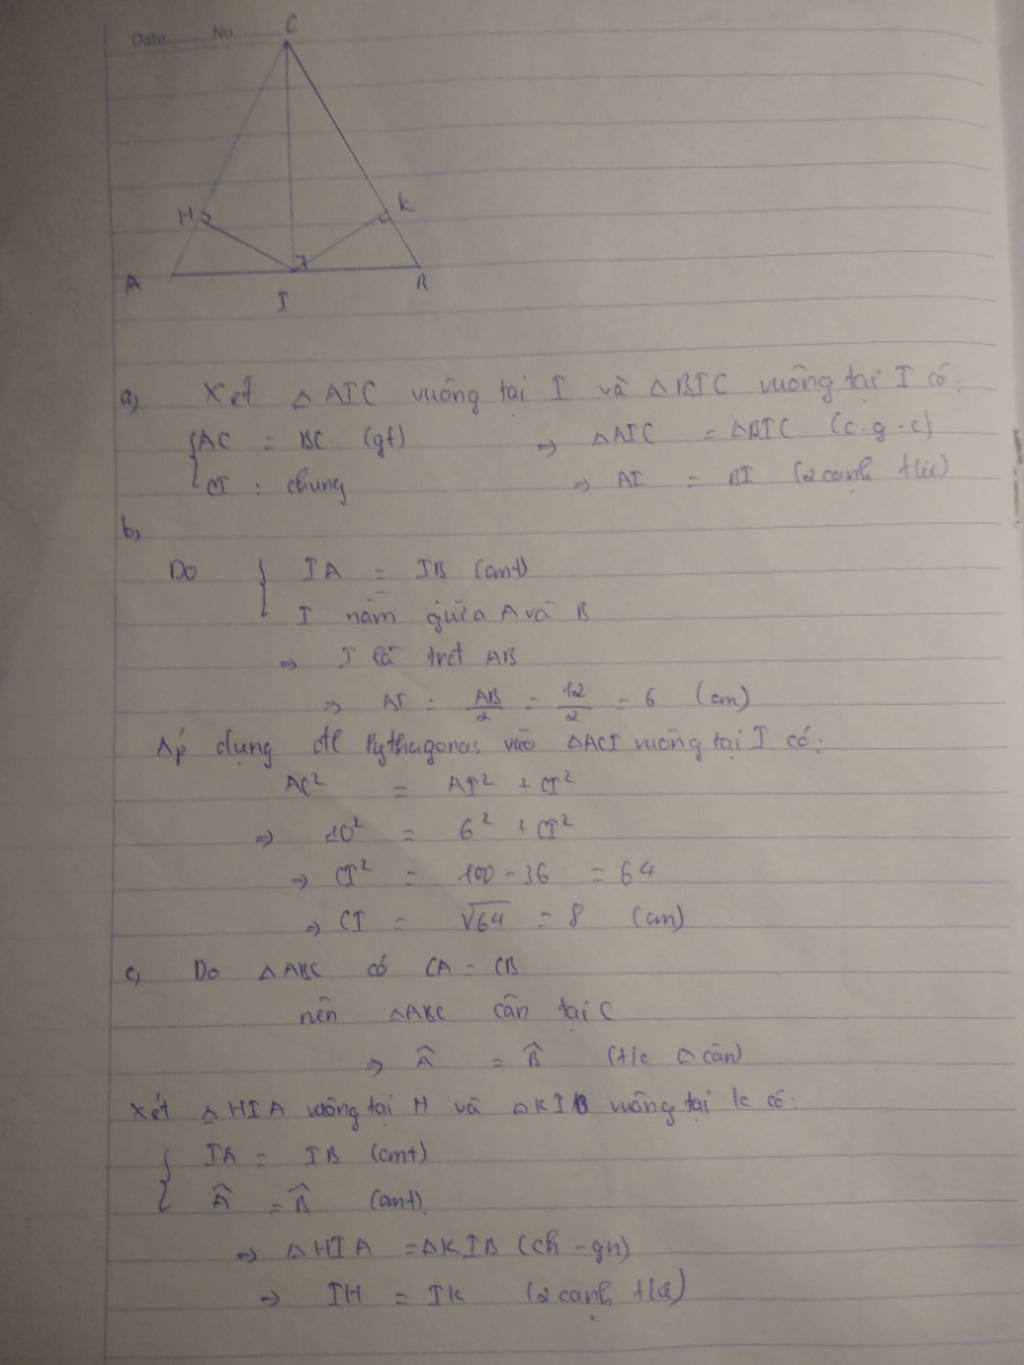 Date No
C
H
K
A
I
B
a) Xét △AIC vuông tại I và △BIC vuông tại I có:
{ AC = BC (gt) ⇒ △AIC = △BIC (c.g.c)
CI : chung ⇒ AI = BI (2 cạnh t/ứ)
b,
Do { IA = IB (cmt)
I nằm giữa A và B
⇒ I là trđ AB
⇒ AI = AB/2 = 12/2 = 6 (cm)
Áp dụng đl Pythagoras vào △ACI vuông tại I có:
AC² = AI² + CI²
⇒ 10² = 6² + CI²
⇒ CI² = 100 - 36 = 64
⇒ CI = √64 = 8 (cm)
c, Do △ABC có CA = CB
nên △ABC cân tại C
⇒ Â = B̂ (t/c △ cân)
Xét △HIA vuông tại H và △KIB vuông tại K có:
{ IA = IB (cmt)
Â = B̂ (cmt)
⇒ △HIA = △KIB (ch - gn)
⇒ IH = IK (2 cạnh t/ứ)